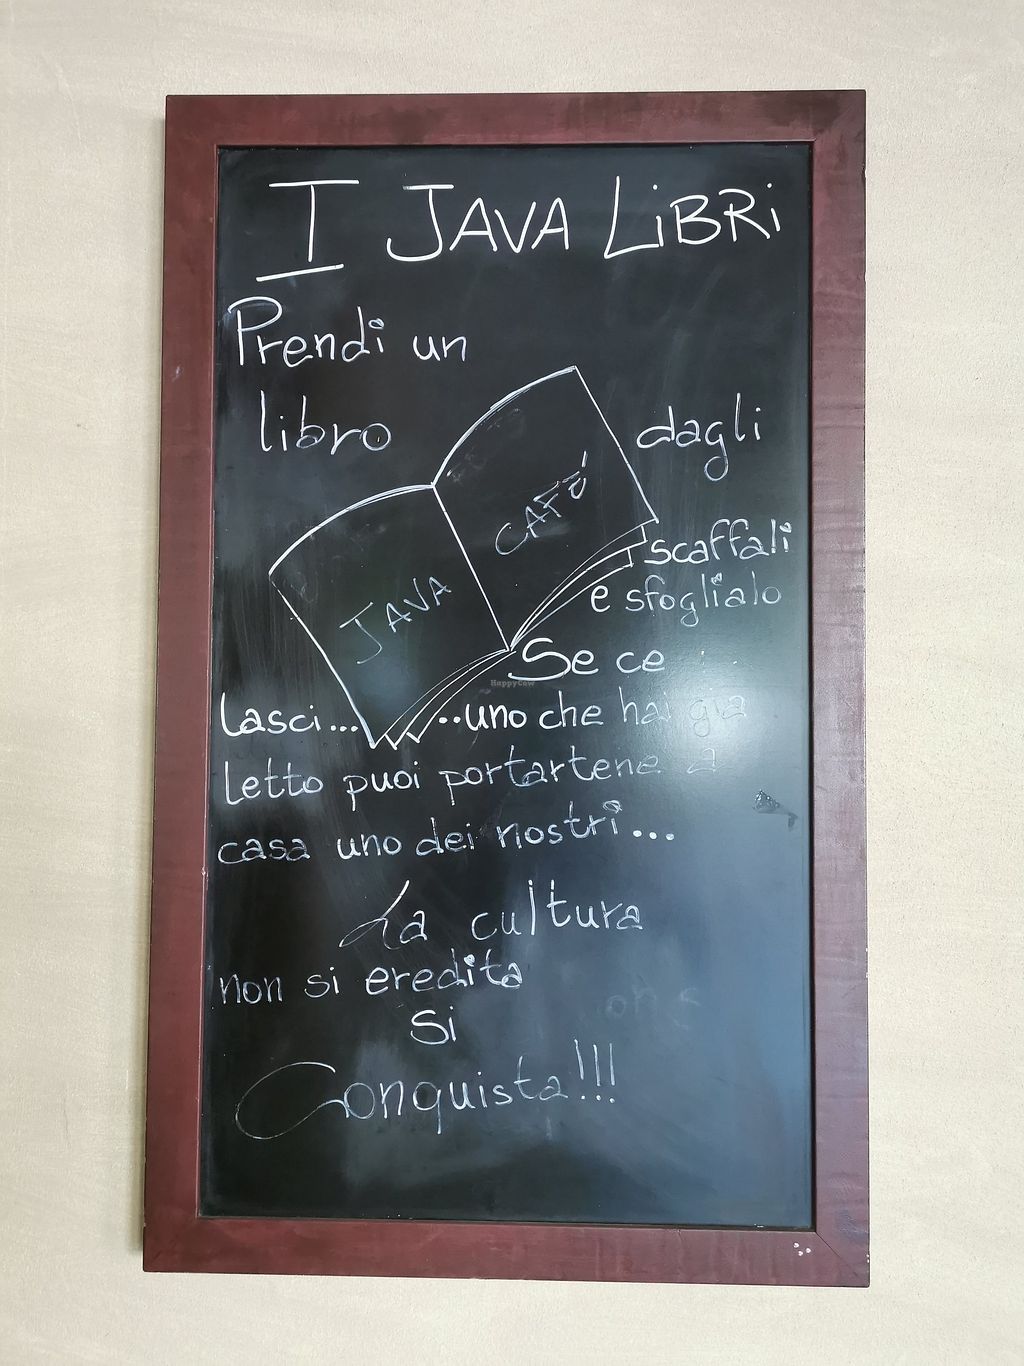 I JAVA LiBRi
Prendi un
libro
dagli
JAVA
CAFÉ
scaffali
e sfoglialo
Se ce
lasci... ..uno che hai gia
letto puoi portartene a
casa uno dei nostri...
La cultura
non si eredita
Si
Conquista!!!
HappyCow